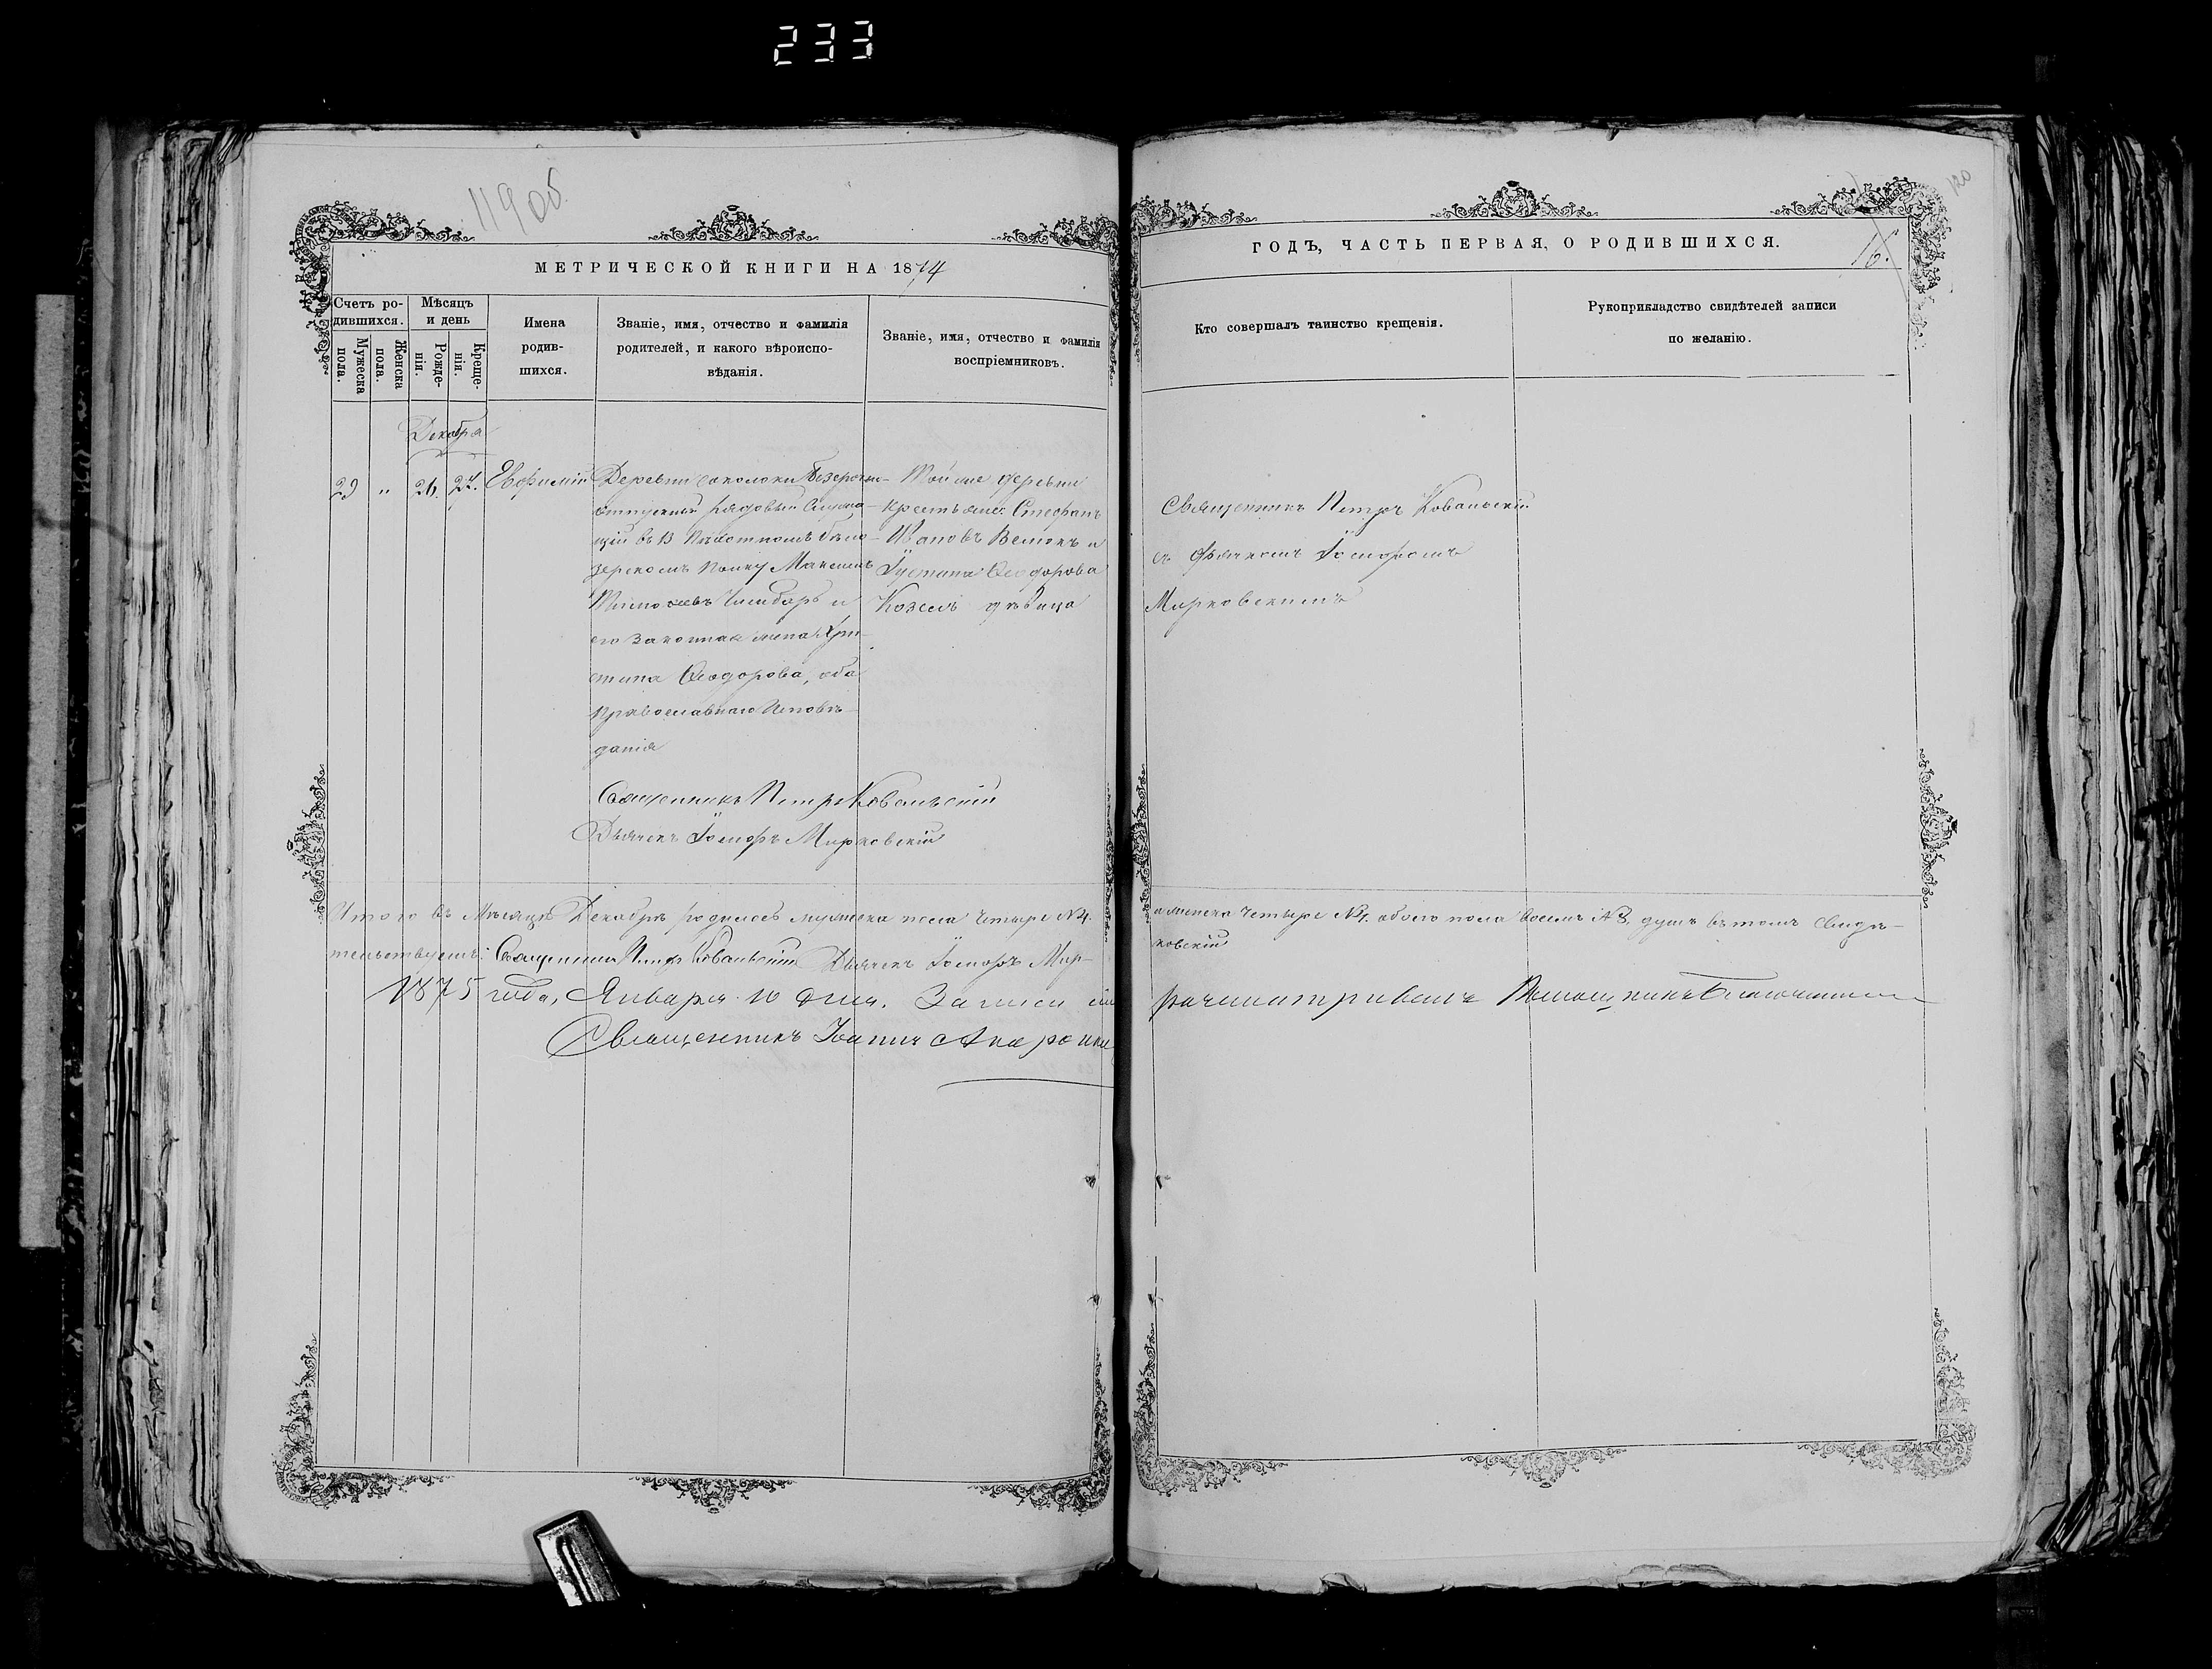 233
11905
120
МЕТРИЧЕСКОЙ КНИГИ НА 1874
ГОДЪ, ЧАСТЬ ПЕРВАЯ, О РОДИВШИХСЯ.
16.
Счетъ ро-
дившихся.
Мужеска
пола.
Женска
пола.
Мѣсяцъ
и день
Рожде-
нія.
Креще-
нія.
Имена
родив-
шихся.
Званіе, имя, отчество и фамилія
родителей, и какого вѣроиспо-
вѣданія.
Званіе, имя, отчество и фамилія
воспріемниковъ.
Кто совершалъ таинство крещенія.
Рукоприкладство свидѣтелей записи
по желанію.
Декабря
29 " 26. 27. Евфимій
Деревни Соколоки безсрочно-
отпускный рядовый Служа-
щій въ 13 Пѣхотномъ Бѣло-
зерскомъ Полку Максимъ
и
его законная жена Хри-
стина Ѳеодорова, оба
православнаго Исповѣ-
данія
Той же деревни
крестьяне: Стефанъ
Ивановъ и
Іустина Ѳеодорова
Козелъ дѣвица
Священникъ Петръ Ковальскій
съ дьячкомъ Іосифомъ
Мирковскимъ
Священникъ Петръ Ковальскій
Дьячекъ Іосифъ Мирковскій
Итого въ Мѣсяцѣ Декабрѣ родилось мужеска пола четыре №4. и женска четыре №4. обоего пола восемь №8. душъ въ томъ свидѣ-
тельствуемъ: Священникъ Петръ Ковальскій Дьячекъ Іосифъ Мир-
ковскій
1875 года, Января 10 дня. Записи сіи разсматривалъ Помощникъ Благочиннаго
Священникъ Іоаннъ